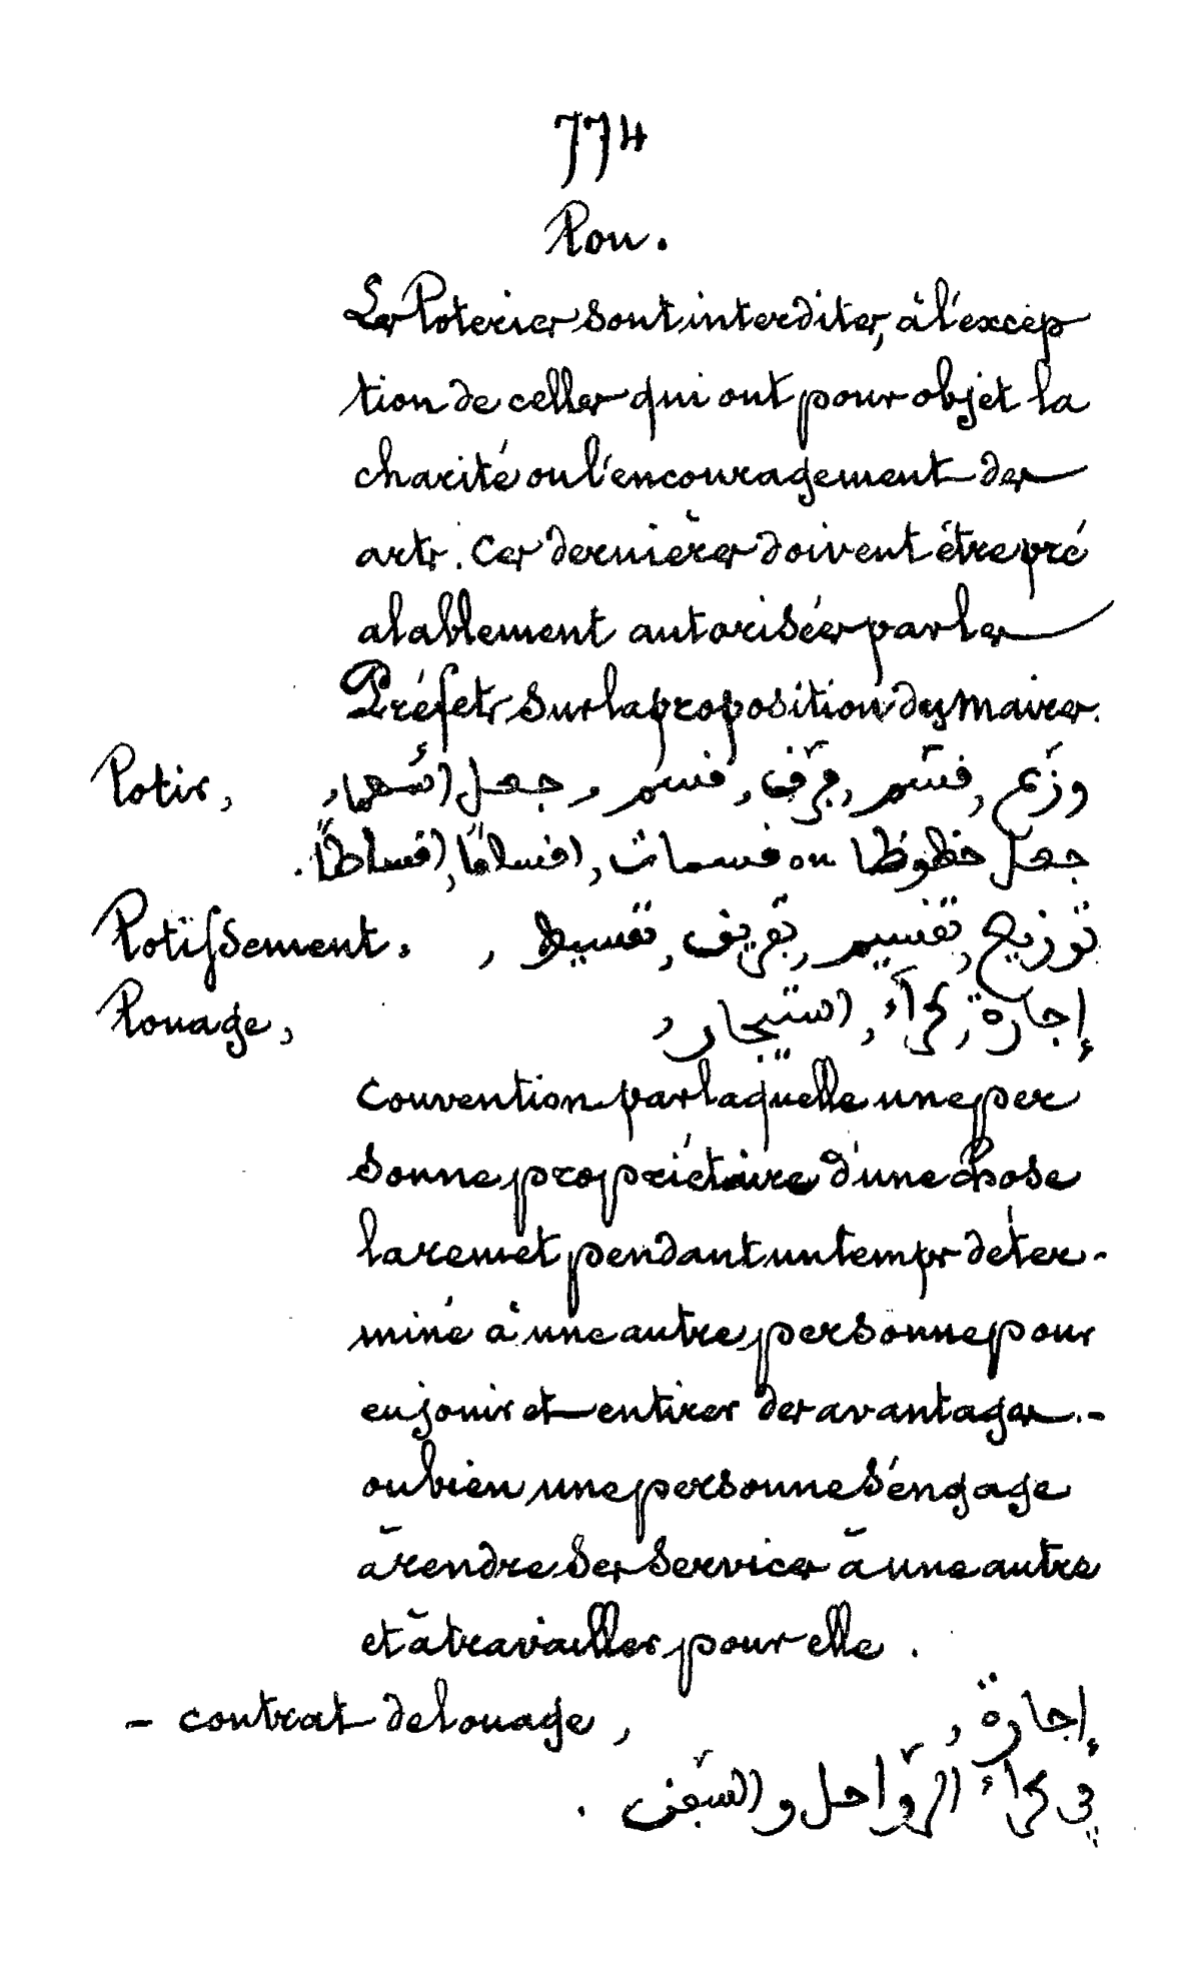 774
Lou.
Les Loteries sont interdites, à l'excep
tion de celles qui ont pour objet la
charité ou l'encouragement des
arts. Ces dernières doivent être pré
alablement autorisées par les
Préfets sur la proposition des Maires.
Lotir, وزّع, فسّم, فرّف, فسم, جعل أسُهما,
جعل حظوظا ou فسمات, افسامًا, افساطًا.
Lotissement. توزيع, تفسيم, تفريف, تفسيط,
Louage, إجارة, كراء, استيجار,
Convention par laquelle une per
sonne propriétaire d'une chose
la remet pendant un temps déter-
miné à une autre personne pour
en jouir et en tirer des avantages.-
ou bien une personne s'engage
à rendre ses services à une autre
et à travailler pour elle.
- contrat de louage, إجارة,
في كراء الرّواحل والسّفن.